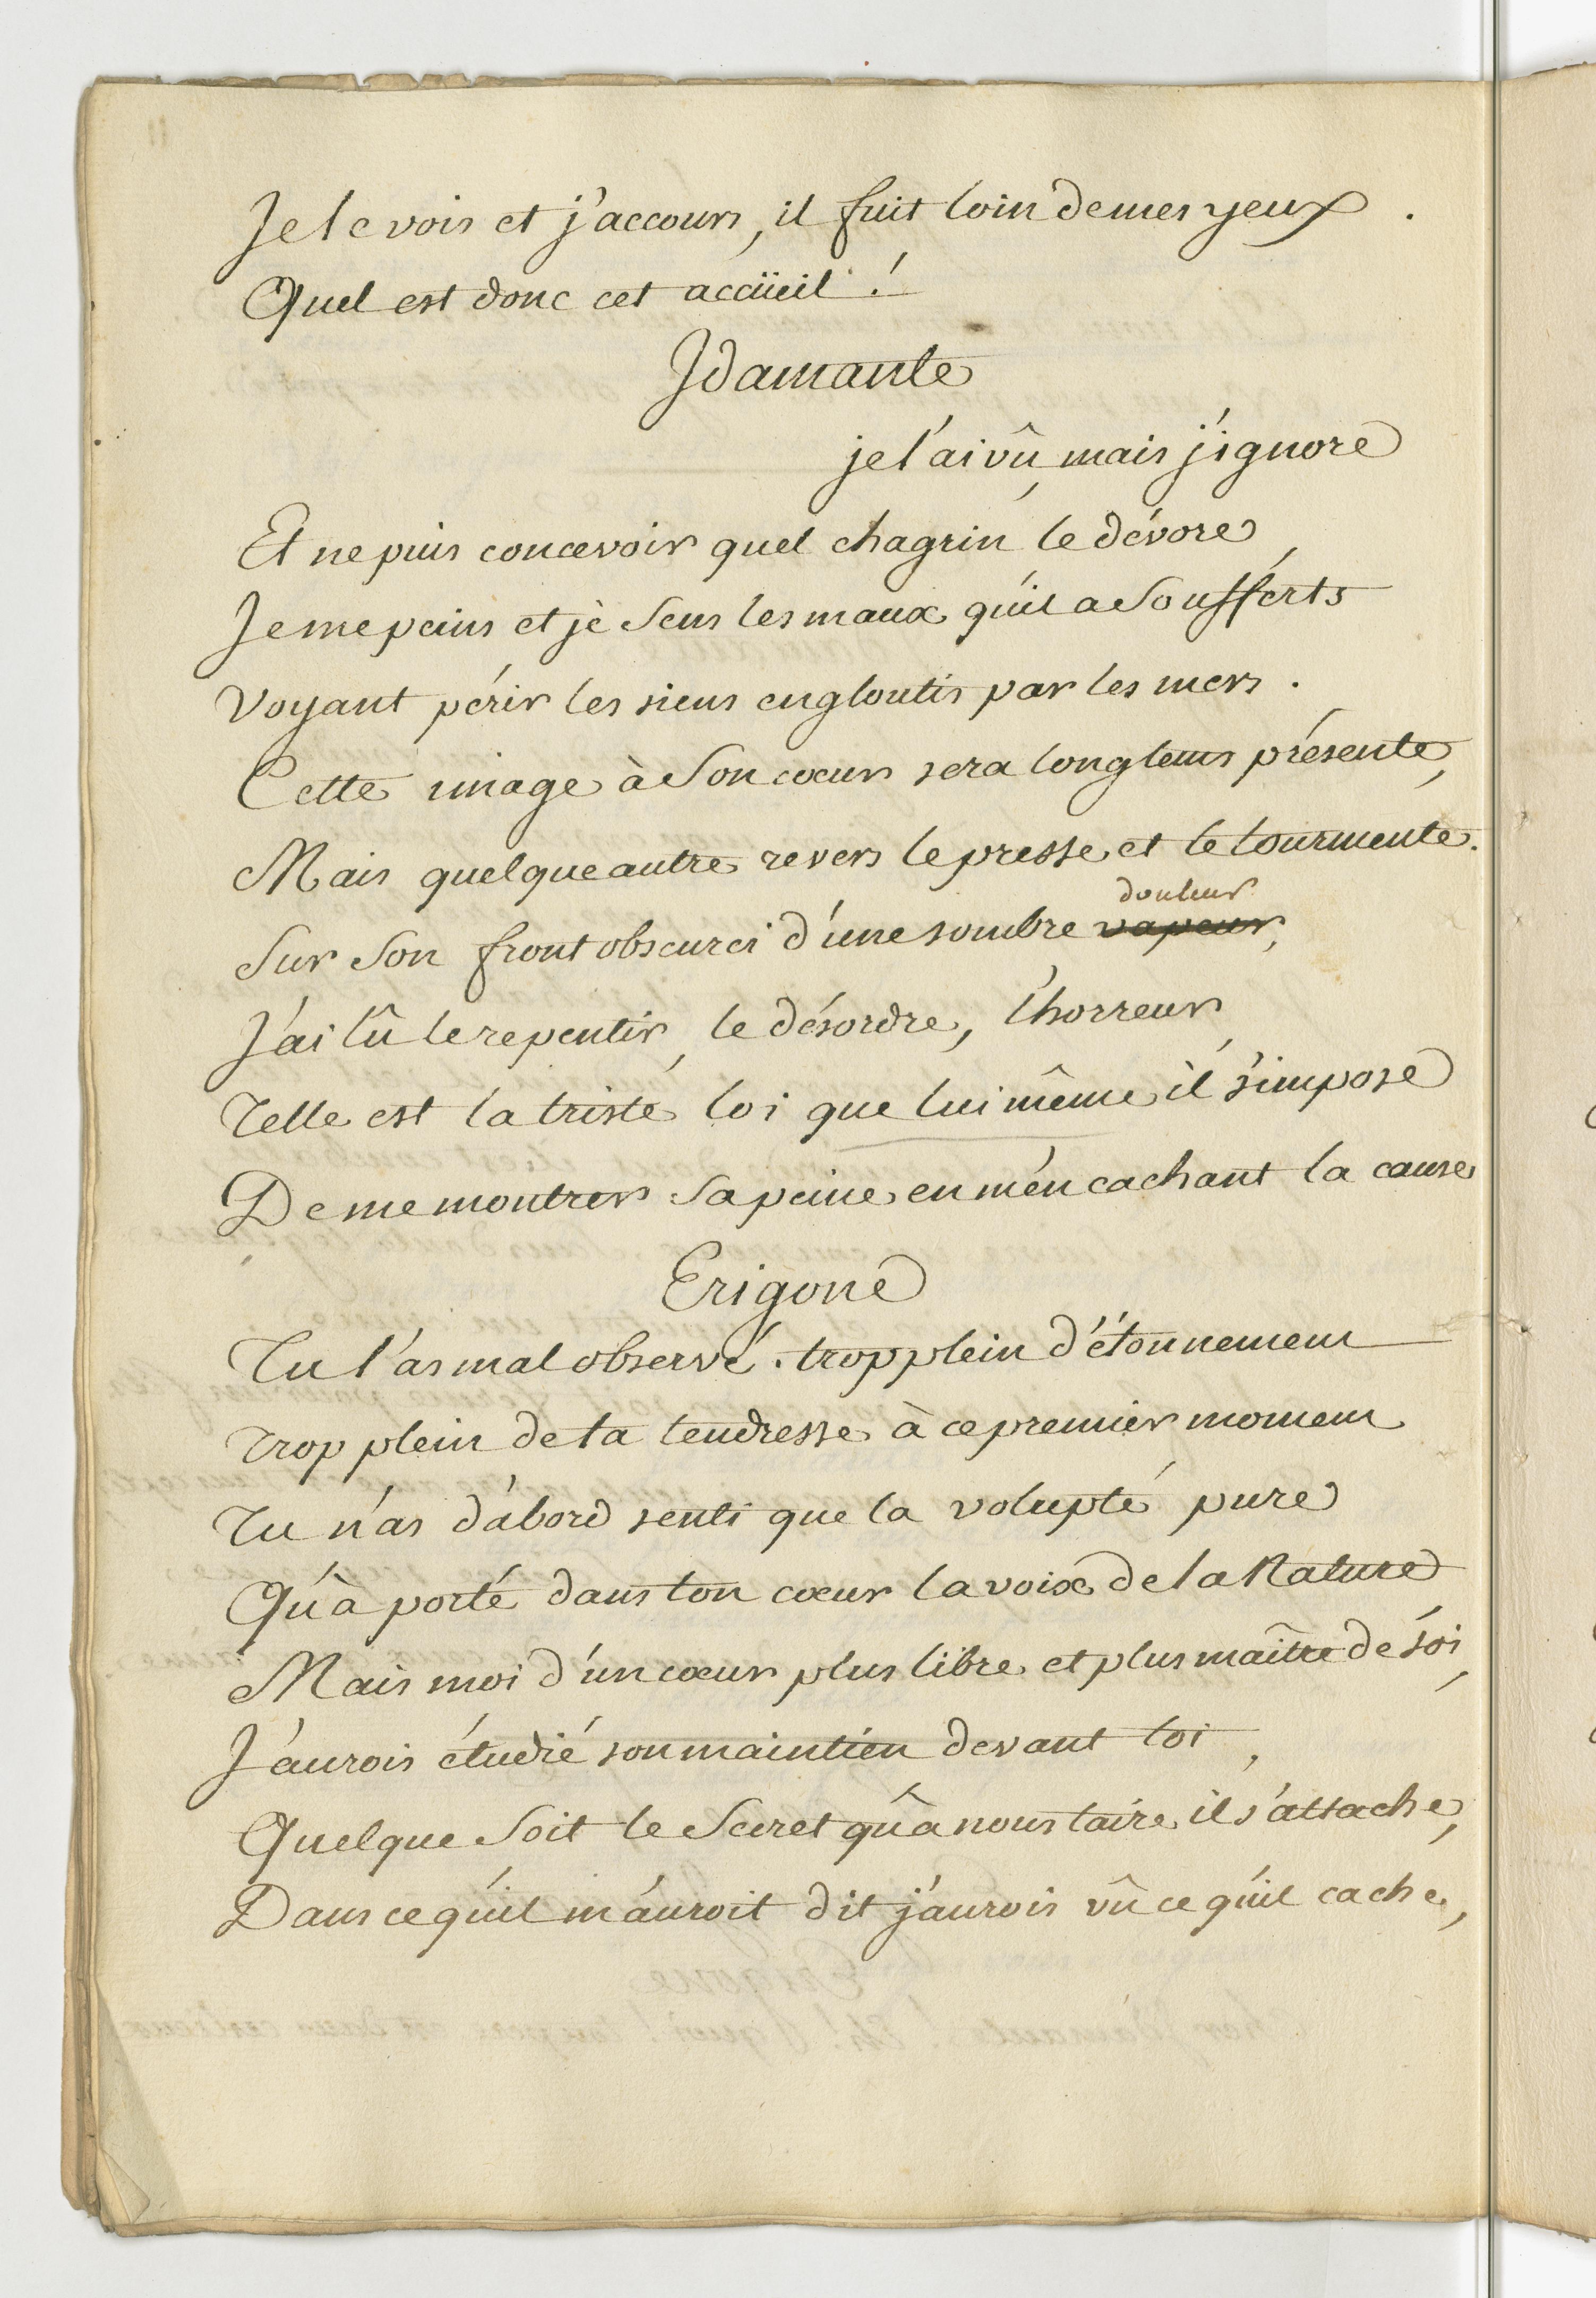 Je le vois et j'accours, il fuit loin de mes yeux .
Quel est donc cet accüeil !
Idamante
je l'ai vû, mais j'ignore
Et ne puis concevoir quel chagrin le dévore,
Je me peins et je sens les maux qu'il a soufferts
Voyant périr les siens engloutis par les mers .
Cette image à son cœur sera longtems présente,
Mais quelque autre revers le presse et le tourmente.
douleur
Sur son front obscurci d'une sombre vapeur,
J'ai lû le repentir, le désordre, l'horreur,
Telle est la triste loi que lui même il s'impose
De me montrer sa peine en m'en cachant la cause
Erigone
Tu l'as mal observé . trop plein d'étonnement
Trop plein de ta tendresse à ce premier moment
Tu n'as d'abord senti que la volupté pure
Qu'à porté dans ton cœur la voix de la Nature
Mais moi d'un cœur plus libre et plus maître de soi,
J'aurois étudié son maintien devant toi,
Quelque soit le secret qu'à nous taire il s'attache,
Dans ce qu'il m'auroit dit j'aurois vû ce qu'il cache,